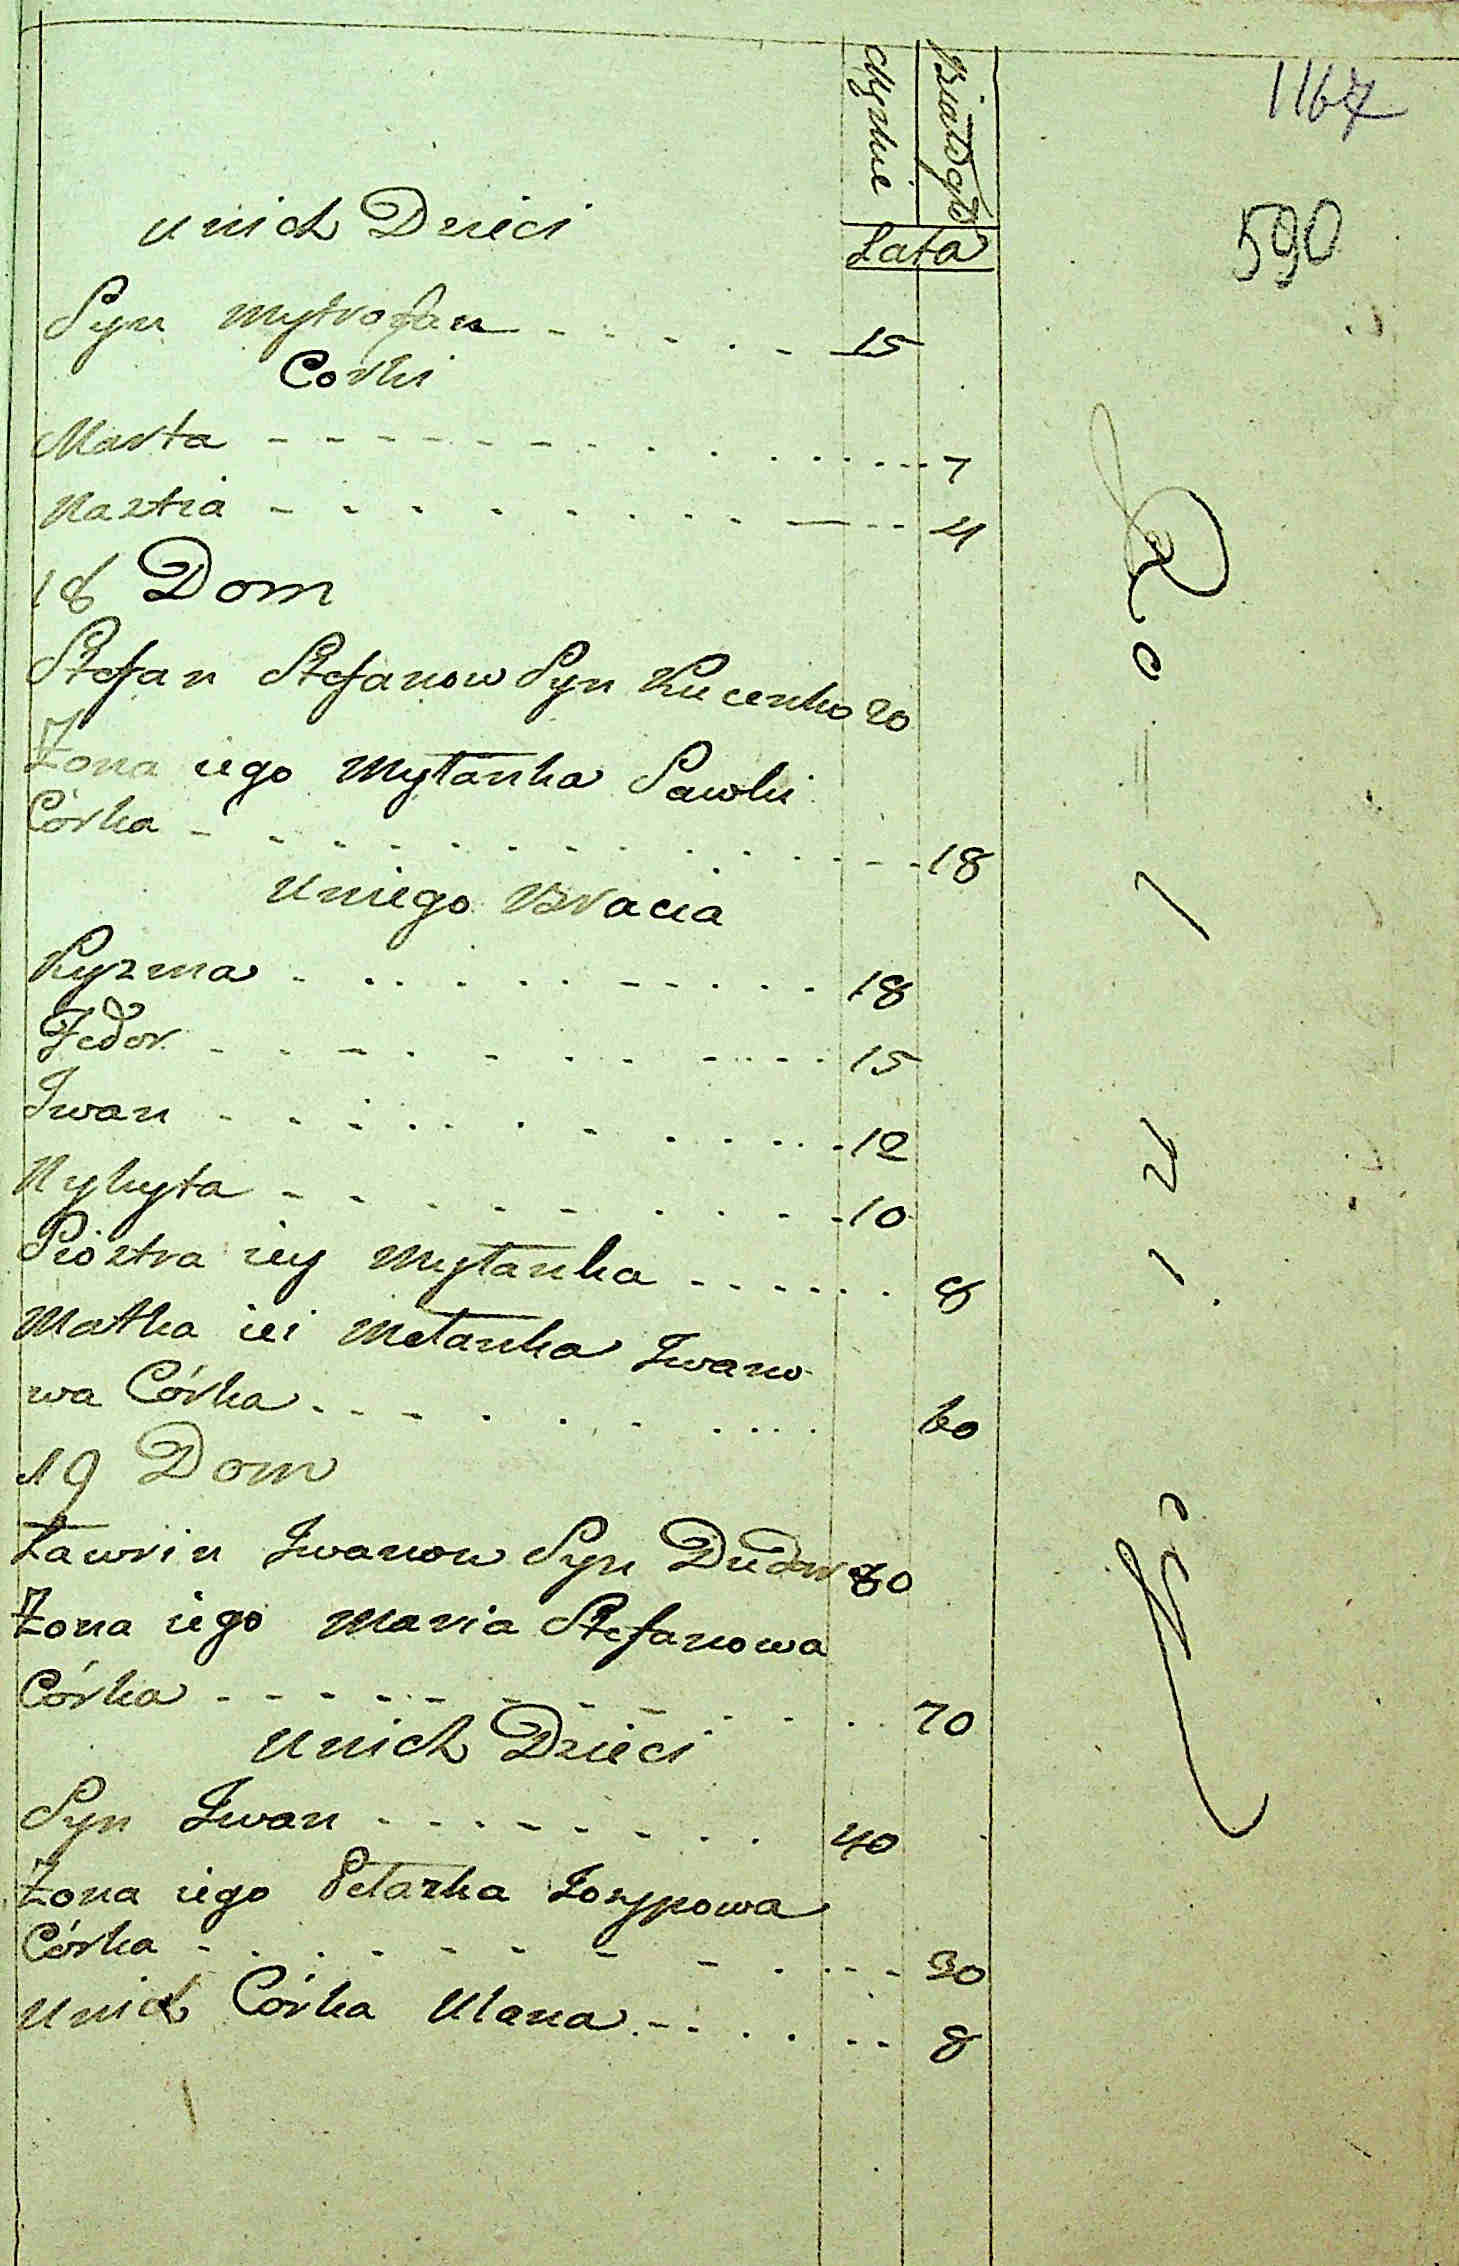 1167
590
Męzkie
Białogło
Lata
u nich Dzieci
Syn Mytrofan - - - - - 15
Corki
Marta - - - - - - - - 7
Nastia - - - - - - - - 4
18 Dom
Stefan Stefanow Syn Kucenko 20
Żona iego Mytanka Pawlu
Córka - - - - - - - - 18
U niego Bracia
Kyzma - - - - - - - - 18
Fedor - - - - - - - - 15
Iwan - - - - - - - - 12
Nykyta - - - - - - - - 10
Siostra iey Mytanka - - - - - - 8
Matka iei Metanka Iwano
wa Córka - - - - - - - - 60
19 Dom
Ławrin Iwanow Syn 80
Żona iego Maria Stefanowa
Córka - - - - - - - - 70
U nich Dzieci
Syn Iwan - - - - - - - - 40
Żona iego Petazka Iosypowa
Córka - - - - - - - - 30
U nich Córka Ulana - - - - - 8